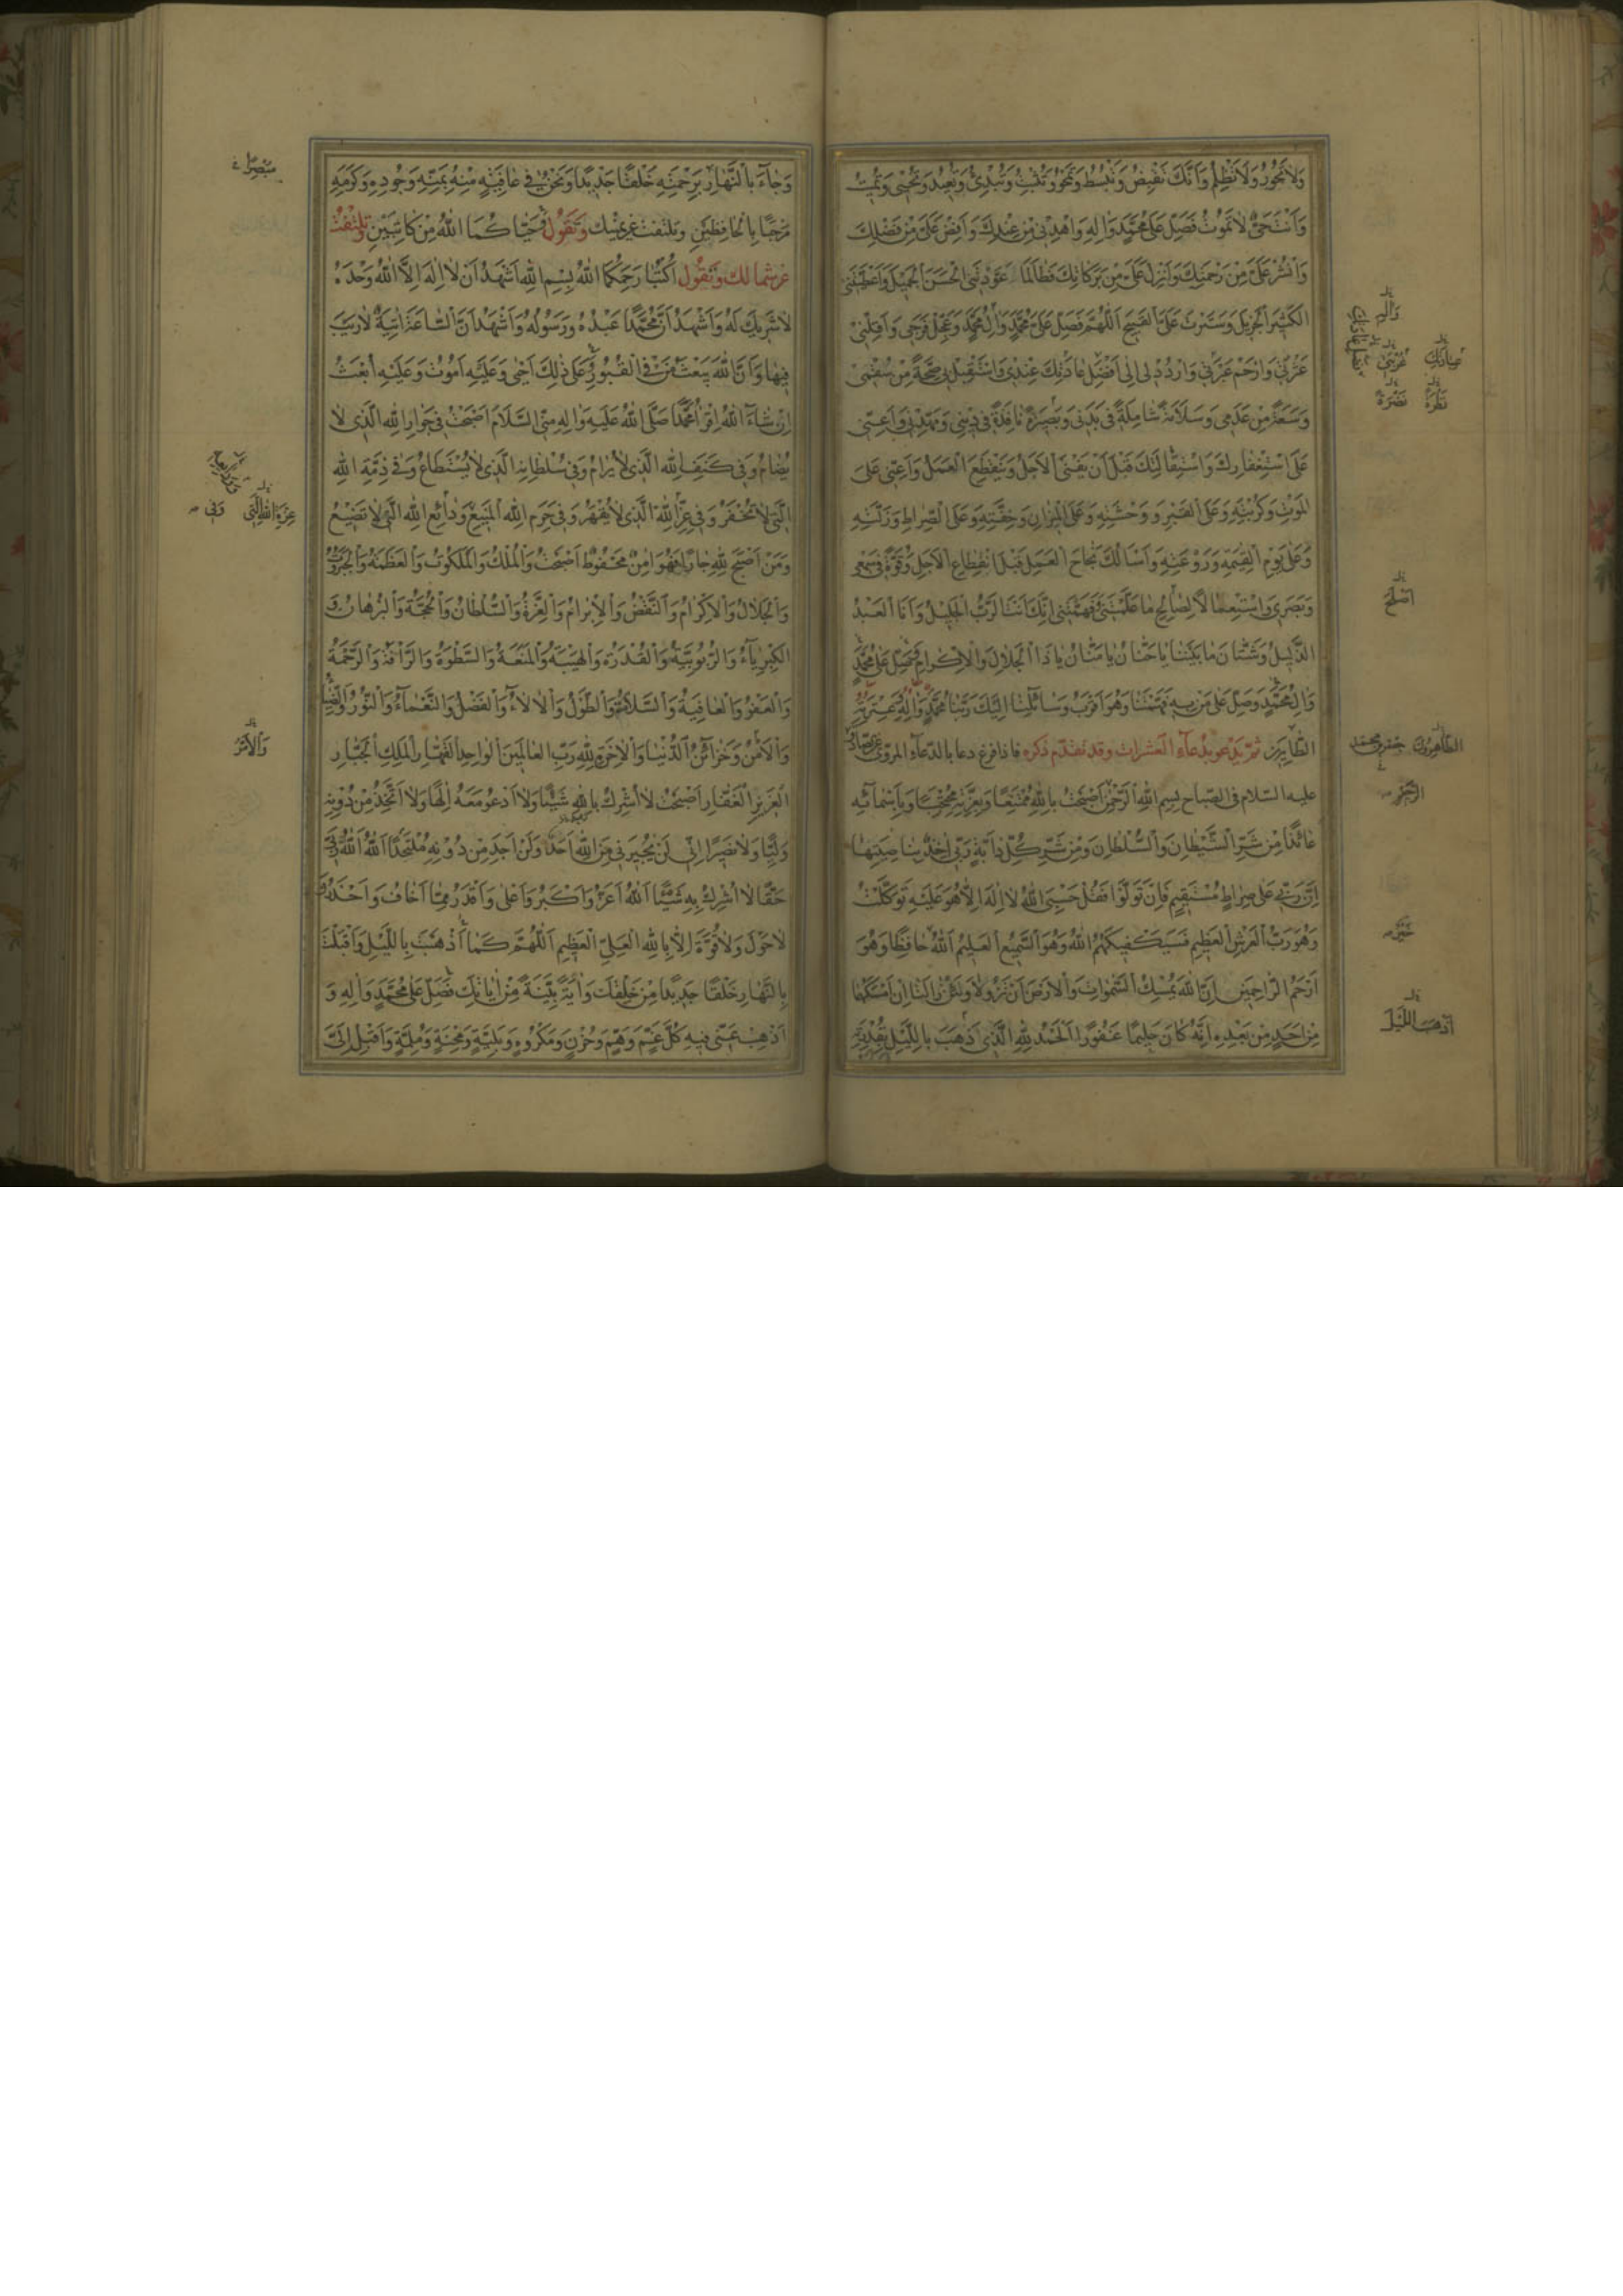 وَلَا تَجُورُ وَلَا تَظْلِمُ وَاَنَّكَ تَقْبِضُ وَتَبْسُطُ وَتَمْحُو وَتُثْبِتُ وَتُبْدِئُ وَتُعِيدُ وَتُحْيِي وَتُمِيتُ
وَاَنْتَ حَيٌّ لَا تَمُوتُ فَصَلِّ عَلَى مُحَمَّدٍ وَاٰلِهِ وَاهْدِنِي مِنْ عِنْدِكَ وَاَفِضْ عَلَيَّ مِنْ فَضْلِكَ
وَانْشُرْ عَلَيَّ مِنْ رَحْمَتِكَ وَاَنْزِلْ عَلَيَّ مِنْ بَرَكَاتِكَ فَطَالَمَا عَوَّدْتَنِي الْحَسَنَ الْجَمِيلَ وَاَعْطَيْتَنِي
الْكَثِيرَ الْجَزِيلَ وَسَتَرْتَ عَلَيَّ الْقَبِيحَ اَللّٰهُمَّ فَصَلِّ عَلَى مُحَمَّدٍ وَاٰلِ مُحَمَّدٍ وَعَجِّلْ فَرَجِي وَاَقِلْنِي
عَثْرَتِي وَارْحَمْ عَبْرَتِي وَارْدُدْنِي اِلَى اَفْضَلِ عَادَتِكَ عِنْدِي وَاسْتَقْبِلْ بِي صِحَّةً مِنْ سُقْمِي
وَسَعَةً مِنْ عَدَمِي وَسَلَامَةً شَامِلَةً فِي بَدَنِي وَبَصِيرَةً نَافِذَةً فِي دِينِي وَمَهِّدْنِي وَاَعِنِّي
عَلَى اسْتِغْفَارِكَ وَاسْتِقَالَتِكَ قَبْلَ اَنْ يَفْنَى الْاَجَلُ وَيَنْقَطِعَ الْعَمَلُ وَاَعِنِّي عَلَى
الْمَوْتِ وَكُرْبَتِهِ وَعَلَى الْقَبْرِ وَوَحْشَتِهِ وَعَلَى الْمِيزَانِ وَخِفَّتِهِ وَعَلَى الصِّرَاطِ وَزَلَّتِهِ
وَعَلَى يَوْمِ الْقِيٰمَةِ وَرَوْعَتِهِ وَاَسْاَلُكَ نَجَاحَ الْعَمَلِ قَبْلَ انْقِطَاعِ الْاَجَلِ وَقُوَّةً فِي سَمْعِي
وَبَصَرِي وَاسْتِعْمَالًا لِصَالِحِ مَا عَلَّمْتَنِي وَفَهَّمْتَنِي اِنَّكَ اَنْتَ الرَّبُّ الْجَلِيلُ وَاَنَا الْعَبْدُ
الذَّلِيلُ وَشَتَّانَ مَا بَيْنَنَا يَا حَنَّانُ يَا مَنَّانُ يَا ذَا الْجَلَالِ وَالْاِكْرَامِ صَلِّ عَلَى مُحَمَّدٍ
وَاٰلِ مُحَمَّدٍ وَصَلِّ عَلَى مَنْ بِهِ فَهَّمْتَنَا وَهُوَ اَقْرَبُ وَسَائِلِنَا اِلَيْكَ رَبَّنَا مُحَمَّدٍ وَاٰلِهِ وَعِتْرَتِهِ
الطَّاهِرِينَ ثُمَّ تَدْعُو بِدُعَآءِ الْعَشَرَاتِ وقد تقدّم ذكره فاذا فرغ دعا بالدّعآء المروى عن صادق
عليه السّلام فى الصّباح بسم اللّٰه الرّحمٰن اَصْبَحْتُ بِاللّٰهِ مُمْتَنِعًا وَبِعِزَّتِهِ مُحْتَجِبًا وَبِاَسْمَآئِهِ
عَائِذًا مِنْ شَرِّ الشَّيْطَانِ وَالسُّلْطَانِ وَمِنْ شَرِّ كُلِّ دَابَّةٍ رَبِّي اٰخِذٌ بِنَاصِيَتِهَا
اِنَّ رَبِّي عَلَى صِرَاطٍ مُسْتَقِيمٍ فَاِنْ تَوَلَّوْا فَقُلْ حَسْبِيَ اللّٰهُ لَا اِلٰهَ اِلَّا هُوَ عَلَيْهِ تَوَكَّلْتُ
وَهُوَ رَبُّ الْعَرْشِ الْعَظِيمِ فَسَيَكْفِيكَهُمُ اللّٰهُ وَهُوَ السَّمِيعُ الْعَلِيمُ اَللّٰهُ حَافِظًا وَهُوَ
اَرْحَمُ الرَّاحِمِينَ اِنَّ اللّٰهَ يُمْسِكُ السَّمٰوَاتِ وَالْاَرْضَ اَنْ تَزُولَا وَلَئِنْ زَالَتَا اِنْ اَمْسَكَهُمَا
مِنْ اَحَدٍ مِنْ بَعْدِهِ اِنَّهُ كَانَ حَلِيمًا غَفُورًا اَلْحَمْدُ لِلّٰهِ الَّذِي ذَهَبَ بِاللَّيْلِ بِقُدْرَتِهِ
وَاٰلِهِ
عَادَتِكَ
غُرْبَتِي
نَظْرَةً
نَضْرَةً
اَصْلَحَ
الطَّاهِرِينَ
جعفر بن محمد
الرّحيم
خَيْرٌ
اَذْهَبَ اللَّيْلَ
وَجَآءَ بِالنَّهَارِ بِرَحْمَتِهِ خَلْقًا جَدِيدًا وَنَحْنُ فِي عَافِيَةٍ مِنْهُ بِمَنِّهِ وَجُودِهِ وَكَرَمِهِ
مَرْحَبًا بِالْحَافِظَيْنِ وَتَلْتَفِتُ عَنْ يَمِينِكَ وَتَقُولُ حَيَّاكُمَا اللّٰهُ مِنْ كَاتِبَيْنِ وَتَلْتَفِتُ
عَنْ شِمَالِكَ وَتَقُولُ اُكْتُبَا رَحِمَكُمَا اللّٰهُ بِسْمِ اللّٰهِ اَشْهَدُ اَنْ لَا اِلٰهَ اِلَّا اللّٰهُ وَحْدَهُ
لَا شَرِيكَ لَهُ وَاَشْهَدُ اَنَّ مُحَمَّدًا عَبْدُهُ وَرَسُولُهُ وَاَشْهَدُ اَنَّ السَّاعَةَ اٰتِيَةٌ لَا رَيْبَ
فِيهَا وَاَنَّ اللّٰهَ يَبْعَثُ مَنْ فِي الْقُبُورِ عَلَى ذٰلِكَ اَحْيَى وَعَلَيْهِ اَمُوتُ وَعَلَيْهِ اُبْعَثُ
اِنْ شَآءَ اللّٰهُ اِقْرَاٰ مُحَمَّدًا صَلَّى اللّٰهُ عَلَيْهِ وَاٰلِهِ مِنِّي السَّلَامَ اَصْبَحْتُ فِي جِوَارِ اللّٰهِ الَّذِي لَا
يُضَامُ وَفِي كَنَفِ اللّٰهِ الَّذِي لَا يُرَامُ وَفِي سُلْطَانِهِ الَّذِي لَا يُسْتَطَاعُ وَفِي ذِمَّةِ اللّٰهِ
الَّتِي لَا تُخْفَرُ وَفِي عِزِّ اللّٰهِ الَّذِي لَا يُقْهَرُ وَفِي حَرَمِ اللّٰهِ الْمَنِيعِ وَوَدَائِعِ اللّٰهِ الَّتِي لَا تَضِيعُ
وَمَنْ اَصْبَحَ لِلّٰهِ جَارًا فَهُوَ اٰمِنٌ مَحْفُوظٌ اَصْبَحْتُ وَالْمُلْكُ وَالْمَلَكُوتُ وَالْعَظَمَةُ وَالْجَبَرُوتُ
وَالْجَلَالُ وَالْاِكْرَامُ وَالنَّقْضُ وَالْاِبْرَامُ وَالْعِزَّةُ وَالسُّلْطَانُ وَالْحُجَّةُ وَالْبُرْهَانُ وَ
الْكِبْرِيَآءُ وَالرُّبُوبِيَّةُ وَالْقُدْرَةُ وَالْهَيْبَةُ وَالْمَنَعَةُ وَالسَّطْوَةُ وَالرَّأْفَةُ وَالرَّحْمَةُ
وَالْعَفْوُ وَالْعَافِيَةُ وَالسَّلَامَةُ وَالطَّوْلُ وَالْاٰلَآءُ وَالْفَضْلُ وَالنَّعْمَآءُ وَالنُّورُ وَالضِّيَآءُ
وَالْاَمْنُ وَخَزَائِنُ الدُّنْيَا وَالْاٰخِرَةِ لِلّٰهِ رَبِّ الْعَالَمِينَ الْوَاحِدِ الْقَهَّارِ الْمَلِكِ الْجَبَّارِ
الْعَزِيزِ الْغَفَّارِ اَصْبَحْتُ لَا اُشْرِكُ بِاللّٰهِ شَيْئًا وَلَا اَدْعُو مَعَهُ اِلٰهًا وَلَا اَتَّخِذُ مِنْ دُونِهِ
وَلِيًّا وَلَا نَصِيرًا اِنِّي لَنْ يُجِيرَنِي مِنَ اللّٰهِ اَحَدٌ وَلَنْ اَجِدَ مِنْ دُونِهِ مُلْتَحَدًا اَللّٰهُ اَللّٰهُ رَبِّي
حَقًّا لَا اُشْرِكُ بِهِ شَيْئًا اَللّٰهُ اَعَزُّ وَاَكْبَرُ وَاَعْلَى وَاَقْدَرُ مِمَّا اَخَافُ وَاَحْذَرُ وَ
لَا حَوْلَ وَلَا قُوَّةَ اِلَّا بِاللّٰهِ الْعَلِيِّ الْعَظِيمِ اَللّٰهُمَّ كَمَا اَذْهَبْتَ بِاللَّيْلِ وَاَقْبَلْتَ
بِالنَّهَارِ خَلْقًا جَدِيدًا مِنْ خَلْقِكَ وَاٰيَةً بَيِّنَةً مِنْ اٰيَاتِكَ فَصَلِّ عَلَى مُحَمَّدٍ وَاٰلِهِ وَ
اَذْهِبْ عَنِّي فِيهِ كُلَّ غَمٍّ وَهَمٍّ وَحُزْنٍ وَمَكْرُوهٍ وَبَلِيَّةٍ وَمِحْنَةٍ وَمُلِمَّةٍ وَاَقْبِلْ اِلَيَّ
مُبْصِرًا
عِزَّةِ اللّٰهِ الَّتِي
وَفِي
وَالْاَمْرُ